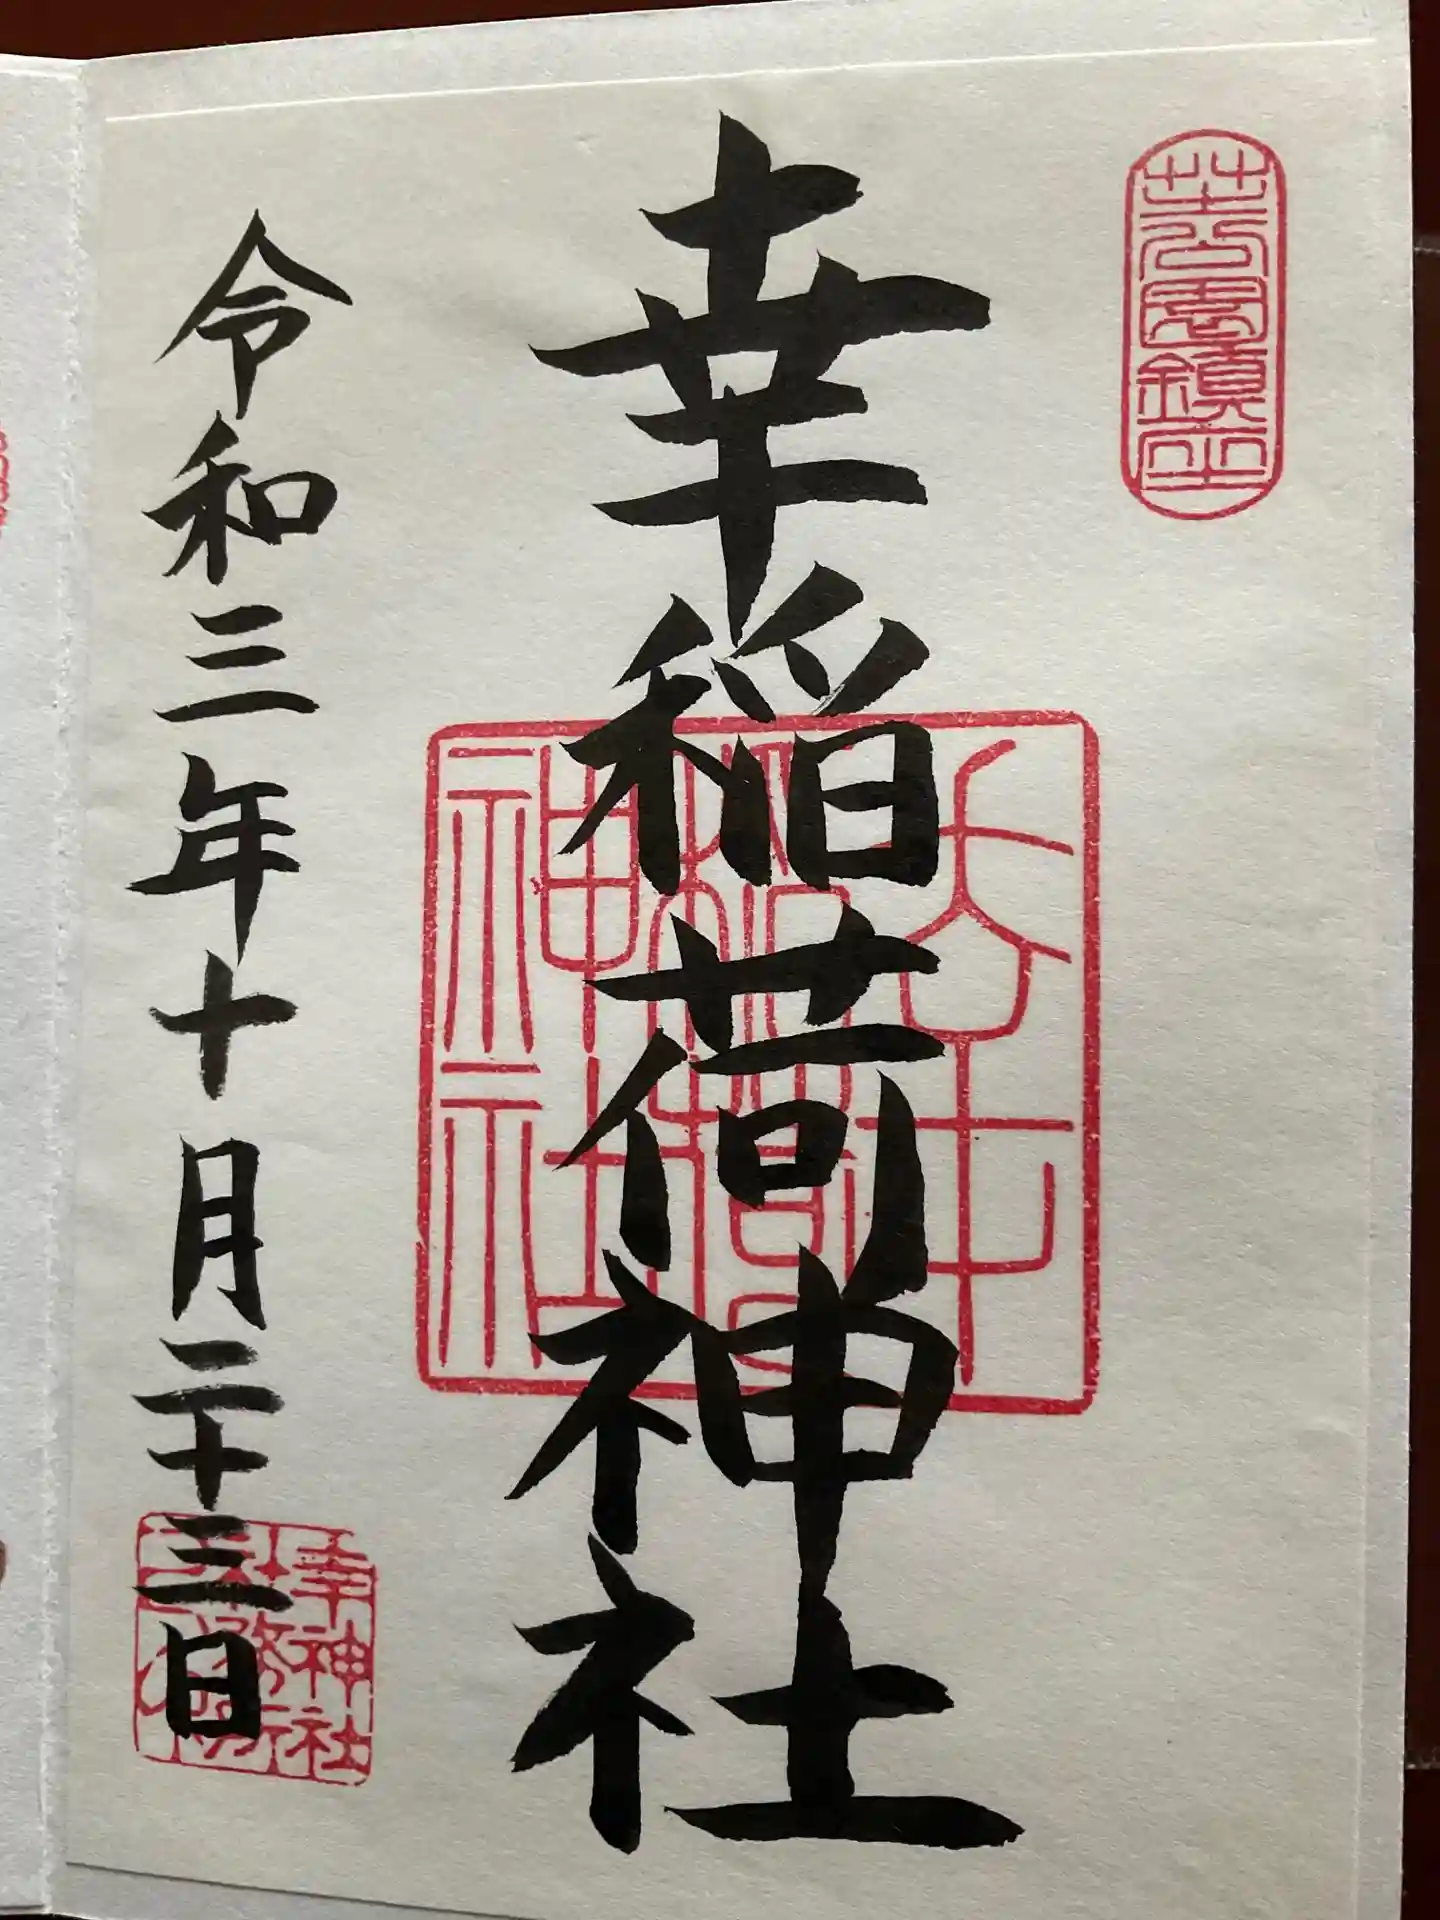 芝公園鎮座
幸稲荷神社
幸
稲荷
神社
令和三年十月二十三日
幸神社
社務所